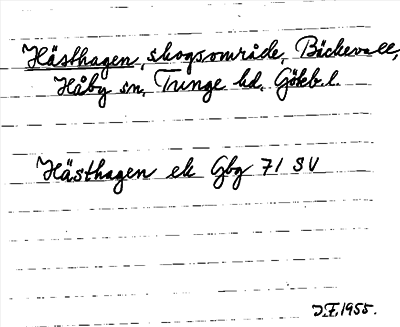 Hästhagen, skogsområde, Bäckevall,
Håby sn, Tunge hd, Götebl.
Hästhagen ek Gbg 71 SV
J.F. 1955.